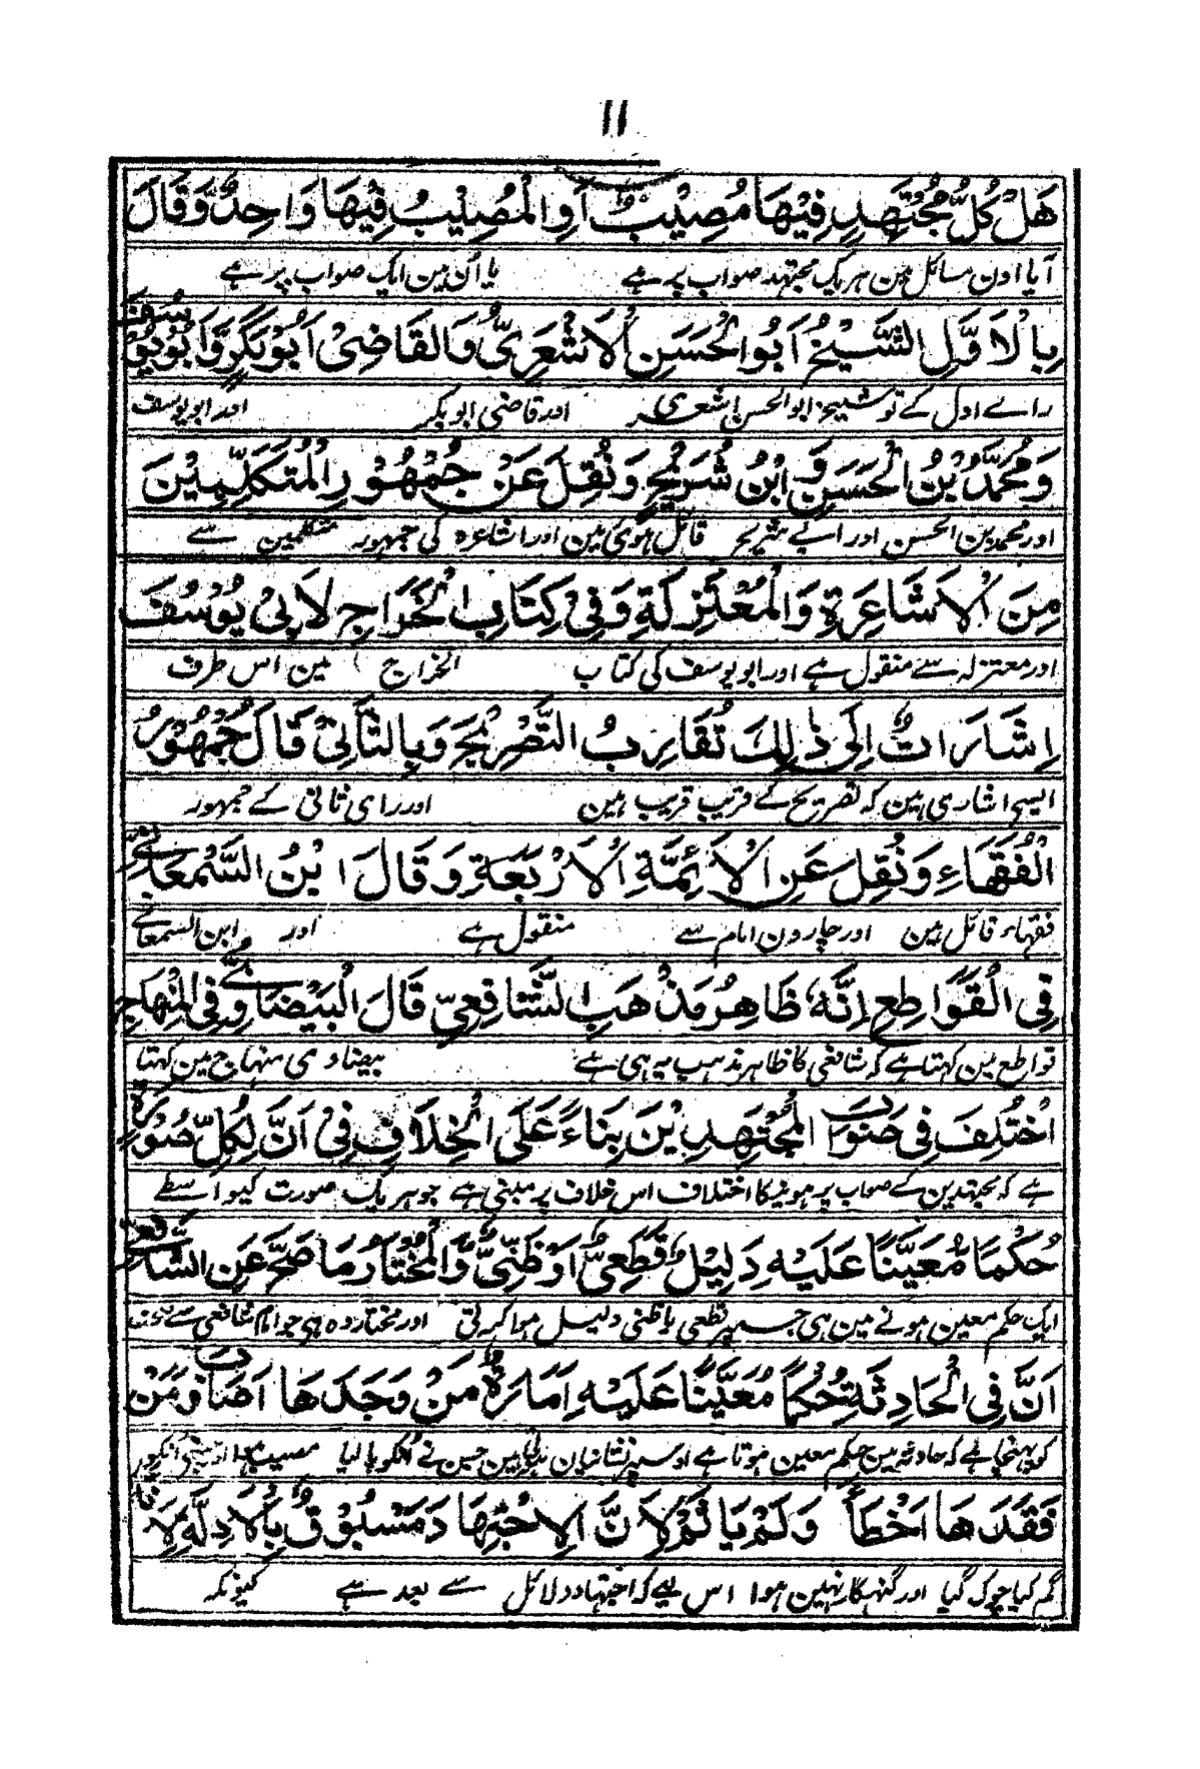 ١١
هَلْ كُلُّ مُجْتَهِدٍ فِيْهَا مُصِيْبٌ اَوِ الْمُصِيْبُ فِيْهَا وَاحِدٌ وَّقَالَ
آیا اون مسائل مین ہر یک مجتہد صواب پر ہے یا اُن مین ایک صواب پر ہے
بِالْاَوَّلِ الشَّيْخُ اَبُو الْحَسَنِ الْاَشْعَرِيُّ وَالْقَاضِيْ اَبُوْبَكْرٍ وَّاَبُوْيُوْسُفَ
راے اول کے تو شیخ ابو الحسن اشعری اور قاضی ابوبکر اور ابویوسف
وَمُحَمَّدُ بْنُ الْحَسَنِ وَ ابْنُ شُرَيْحٍ وَنُقِلَ عَنْ جُمْهُوْرِ الْمُتَكَلِّمِيْنَ
اور محمد بن الحسن اور ابن شریح قائل ہوی ہین اور اشاعرہ کی جمہور متکلمین سے
مِنَ الْاَشَاعِرَةِ وَالْمُعْتَزِلَةِ وَفِيْ كِتَابِ الْخَرَاجِ لِاَبِيْ يُوْسُفَ
اور معتزلہ سے منقول ہے اور ابو یوسف کی کتاب الخراج مین اس طرف
اِشَارَاتٌ اِلٰى ذٰلِكَ تُقَارِبُ التَّصْرِيْحَ وَبِالثَّانِيْ قَالَ جُمْهُوْرُ
ایسی اشاری ہین کہ تصریح کے قریب قریب ہین اور رای ثانی کے جمہور
الْفُقَهَاءِ وَنُقِلَ عَنِ الْاَئِمَّةِ الْاَرْبَعَةِ وَقَالَ ابْنُ السَّمْعَانِيِّ
فقہاء قائل ہین اور چارون امام سے منقول ہے اور ابن السمعانے
فِى الْقَوَاطِعِ اِنَّهٗ ظَاهِرُ مَذْهَبِ الشَّافِعِيِّ قَالَ الْبَيْضَاوِيُّ فِى الْمِنْهَاجِ
قواطع مین کہتا ہے کہ شافعی کا ظاہر مذہب یہ ہی ہے بیضاوی منہاج مین کہتا
اُخْتُلِفَ فِىْ صَوَابِ الْمُجْتَهِدِيْنَ بِنَاءً عَلَى الْخِلَافِ فِىْ اَنَّ لِكُلِّ صُوْرَةٍ
ہے کہ مجتہدین کے صواب پر ہونیکا اختلاف اس خلاف پر مبنی ہے جو ہر یک صورت کیواسطے
حُكْمًا مُعَيَّنًا عَلَيْهِ دَلِيْلٌ قَطْعِيٌّ اَوْ ظَنِّيٌّ وَّالْمُخْتَارُ مَا صَحَّ عَنِ الشَّافِعِيِّ
ایک حکم معین ہونے مین ہی جسپر قطعی یا ظنی دلیل ہوا کرتی اور مختار وہ ہی جو امام شافعی سے
اَنَّ فِى الْحَادِثَةِ حُكْمًا مُعَيَّنًا عَلَيْهِ اَمَارَةٌ مَنْ وَجَدَهَا اَصَابَ وَمَنْ
کو پہنچا ہے کہ حادثہ مین حکم معین ہوتا ہے اوسپر نشانیان ہین جسنے اُنکو پالیا مصیب ہوا
فَقَدَهَا اَخْطَأَ وَلَمْ يَاْثَمْ لِاَنَّ الْاِجْتِهَادَ مَسْبُوْقٌ بِالْاَدِلَّةِ لِاَ
گم کیا چوک گیا اور گنہگار نہین ہوا اس لیے کہ اجتہاد دلائل سے بعد ہے کیونکہ